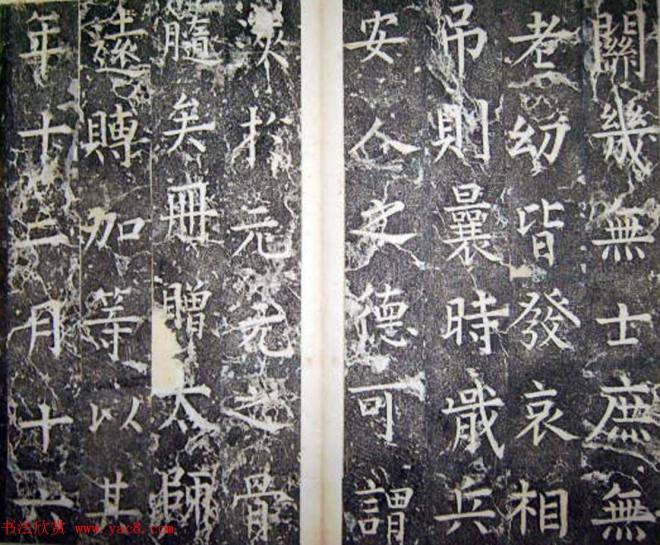 關幾無士庶無
老幼皆發哀相
吊則曩時戢兵
安人之德可謂
浹於元元之骨
髓矣冊贈太師
賻加等以其
年十二月十六
书法欣赏 www.yac8.com